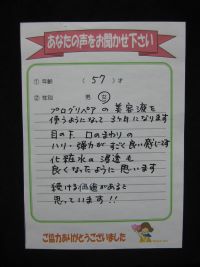 あなたの声をお聞かせ下さい
① 年齢 ( 57 ) 才
② 性別 男・女
プログリペアの美容液を
使うようになって3ヶ月になります
目の下、口のまわりの
ハリ・弾力がすごく良い感じです
化粧水の浸透も
良くなったように思います
続ける価値があると
思っています!!
ご協力ありがとうございました